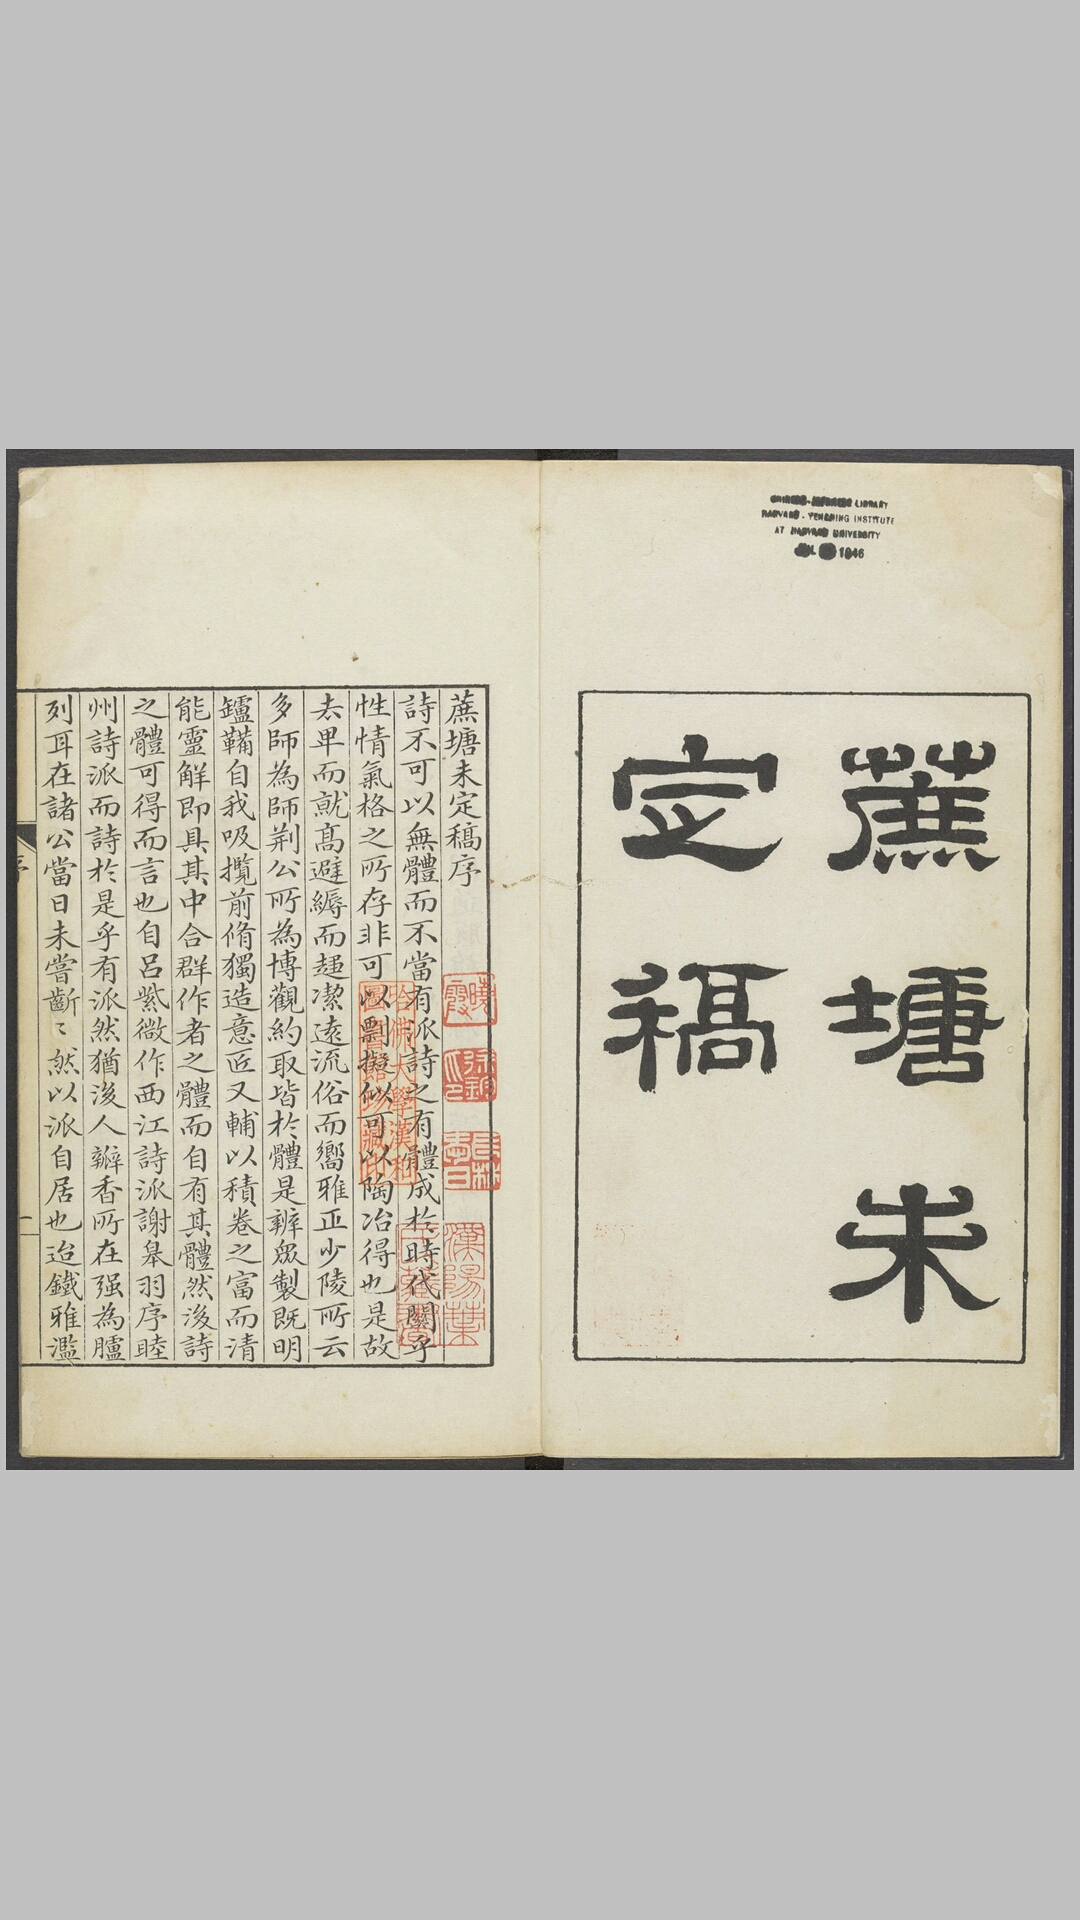 蔗塘未
定稿
CHINESE-JAPANESE LIBRARY
HARVARD-YENCHING INSTITUTE
AT HARVARD UNIVERSITY
1946
蔗塘未定稿序
詩不可以無體而不當有派詩之有體成於時代關乎
性情氣格之所存非可以剽擬似可以陶冶得也是故
去卑而就高避縟而趨潔遠流俗而嚮雅正少陵所云
多師為師荆公所為博觀約取皆於體是辨眾製既明
鑪鞴自我吸攬前脩獨造意匠又輔以積卷之富而清
能靈解即具其中合群作者之體而自有其體然後詩
之體可得而言也自呂紫微作西江詩派謝皋羽序睦
州詩派而詩於是乎有派然猶後人瓣香所在强為臚
列耳在諸公當日未嘗齗〻然以派自居也迨鐵雅濫
序
一
曉霞
哈佛大學漢和
圖書館珍藏印
漢陽葉